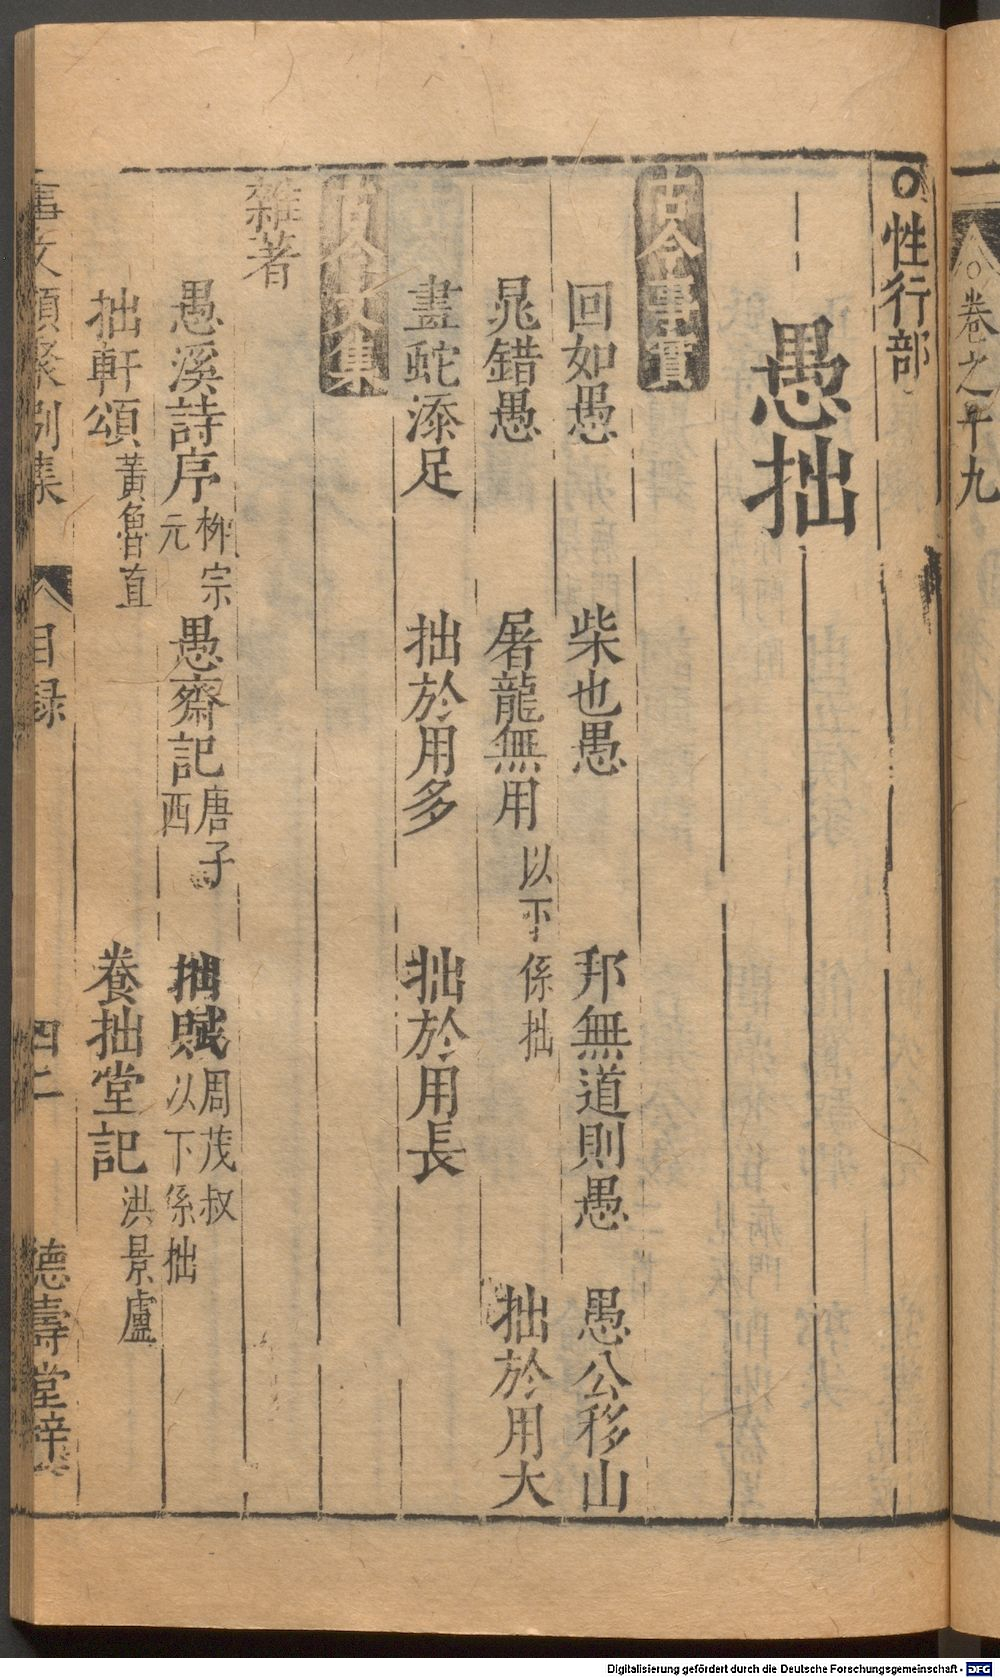 卷之十九
○性行部
愚拙
古今事實
回如愚 柴也愚 邦無道則愚 愚公移山
晁錯愚 屠龍無用 以下係拙 拙於用大
畫蛇添足 拙於用多 拙於用長
古今文集
雜著
愚溪詩序 柳宗元 愚齋記 唐子西 拙賦 周茂叔 以下係拙
拙軒頌 黃魯直 養拙堂記 洪景盧
事文類聚別集 目録 四二 德壽堂梓
Digitalisierung gefördert durch die Deutsche Forschungsgemeinschaft - DFG